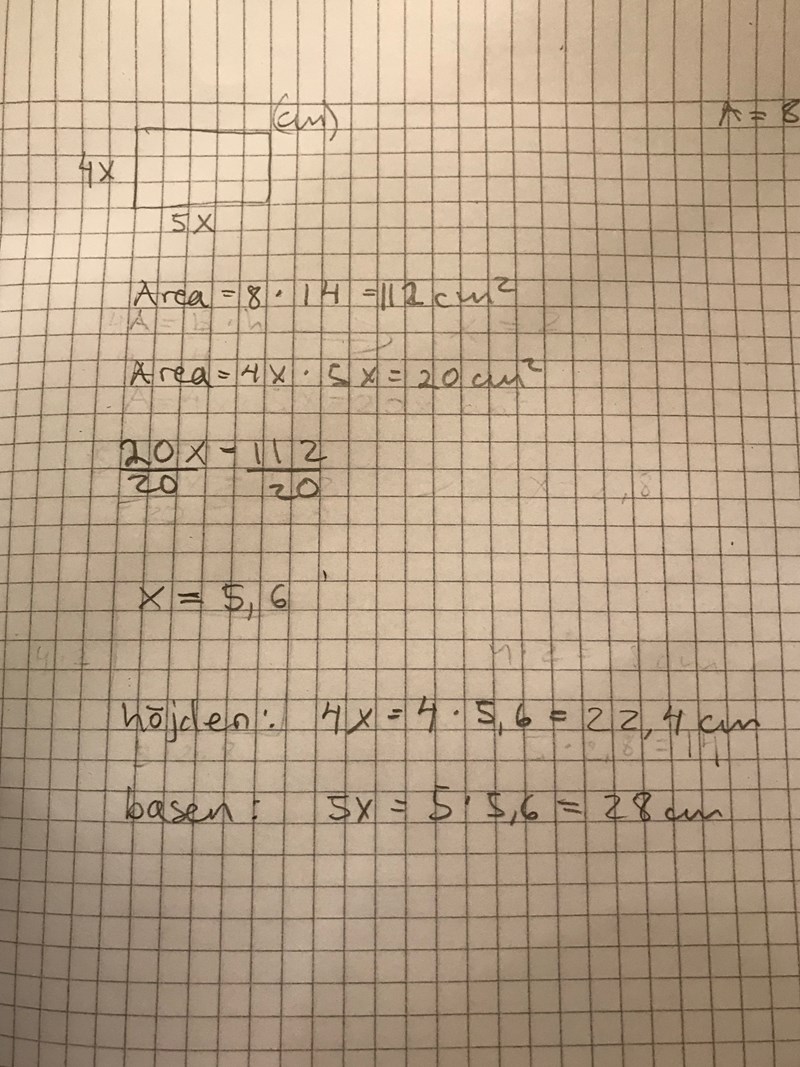 (cm)
A = 8
4x
5x
Area = 8 · 14 = 112 cm²
Area = 4x · 5x = 20 cm²
20x = 112
20 20
x = 5,6
höjden: 4x = 4 · 5,6 = 22,4 cm
basen: 5x = 5 · 5,6 = 28 cm